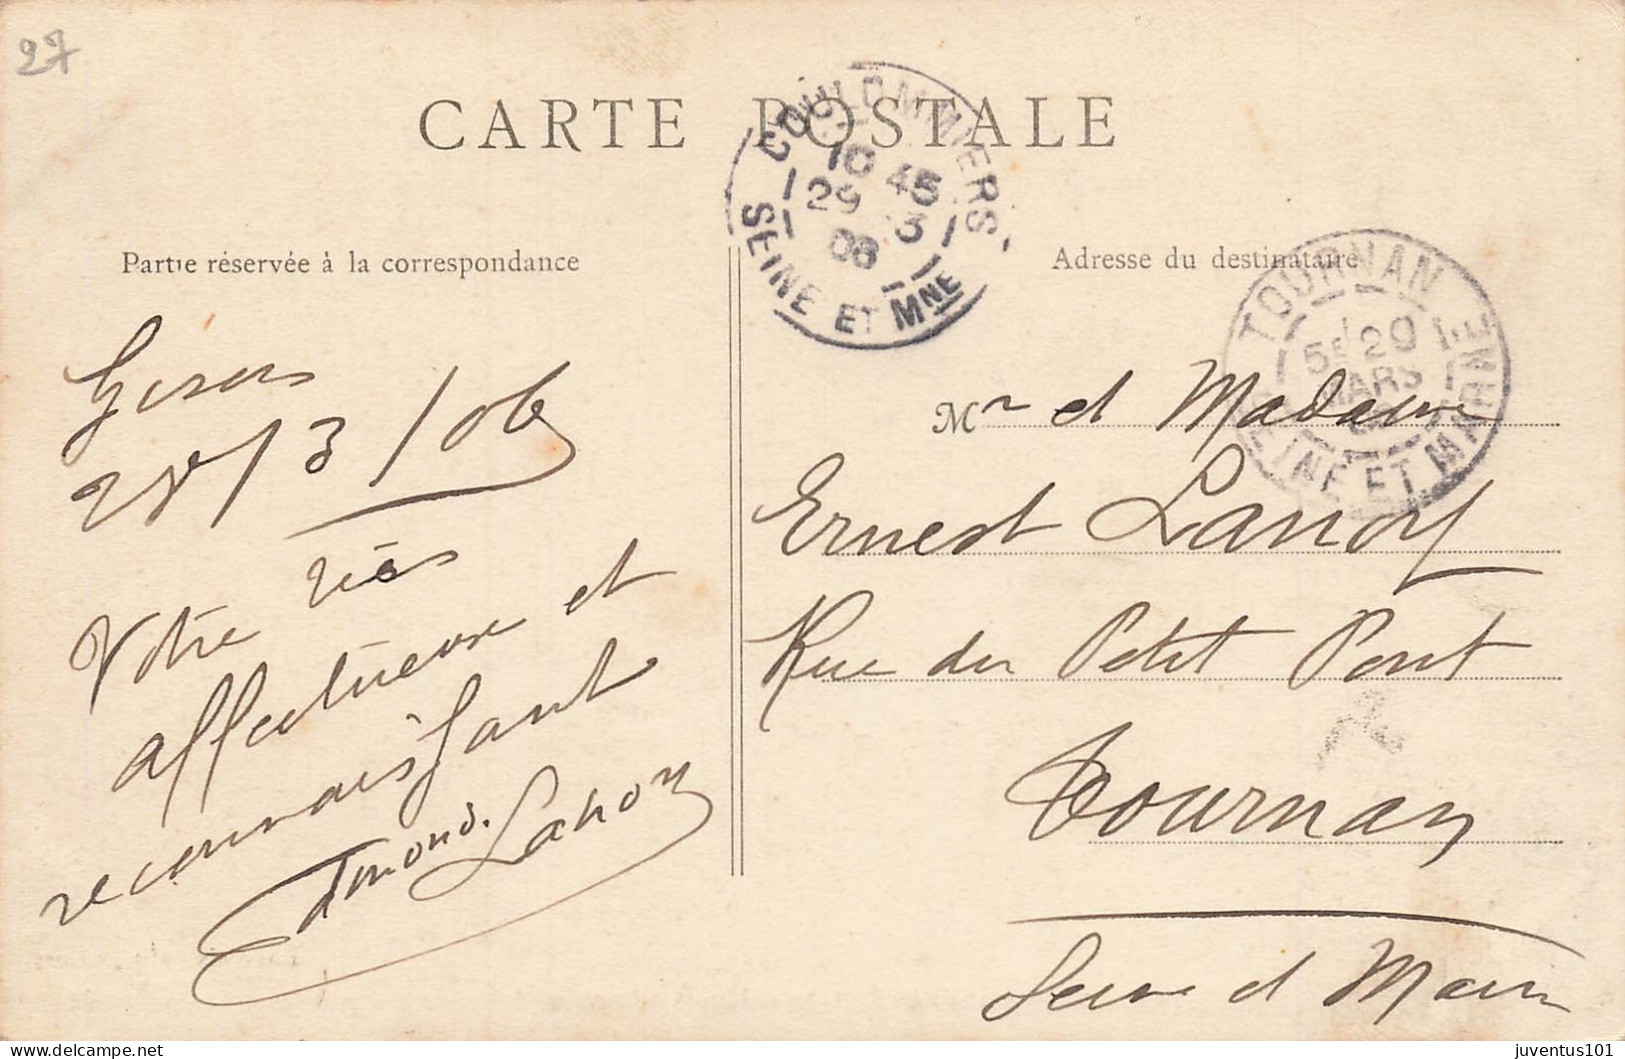 27
CARTE POSTALE
COULOMMIERS
10 45
29 3
06
SEINE ET MNE
Partie réservée à la correspondance
Adresse du destinataire
TOURNAN
29
MARS
SEINE ET MARNE
Gisors
28/3/06
Votre très
affectueux et
reconnaissant
Edmond Lanoy
Mr et Madame
Ernest Lanoy
Rue du Petit Pont
Tournan
Seine et Marne
juventus101